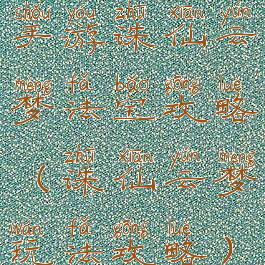 shǒu yóu zhū xiān yún
手游诛仙云
mèng fǎ bǎo gōng lüè
梦法宝攻略
zhū xiān yún mèng
（诛仙云梦
wán fǎ gōng lüè
玩法攻略）